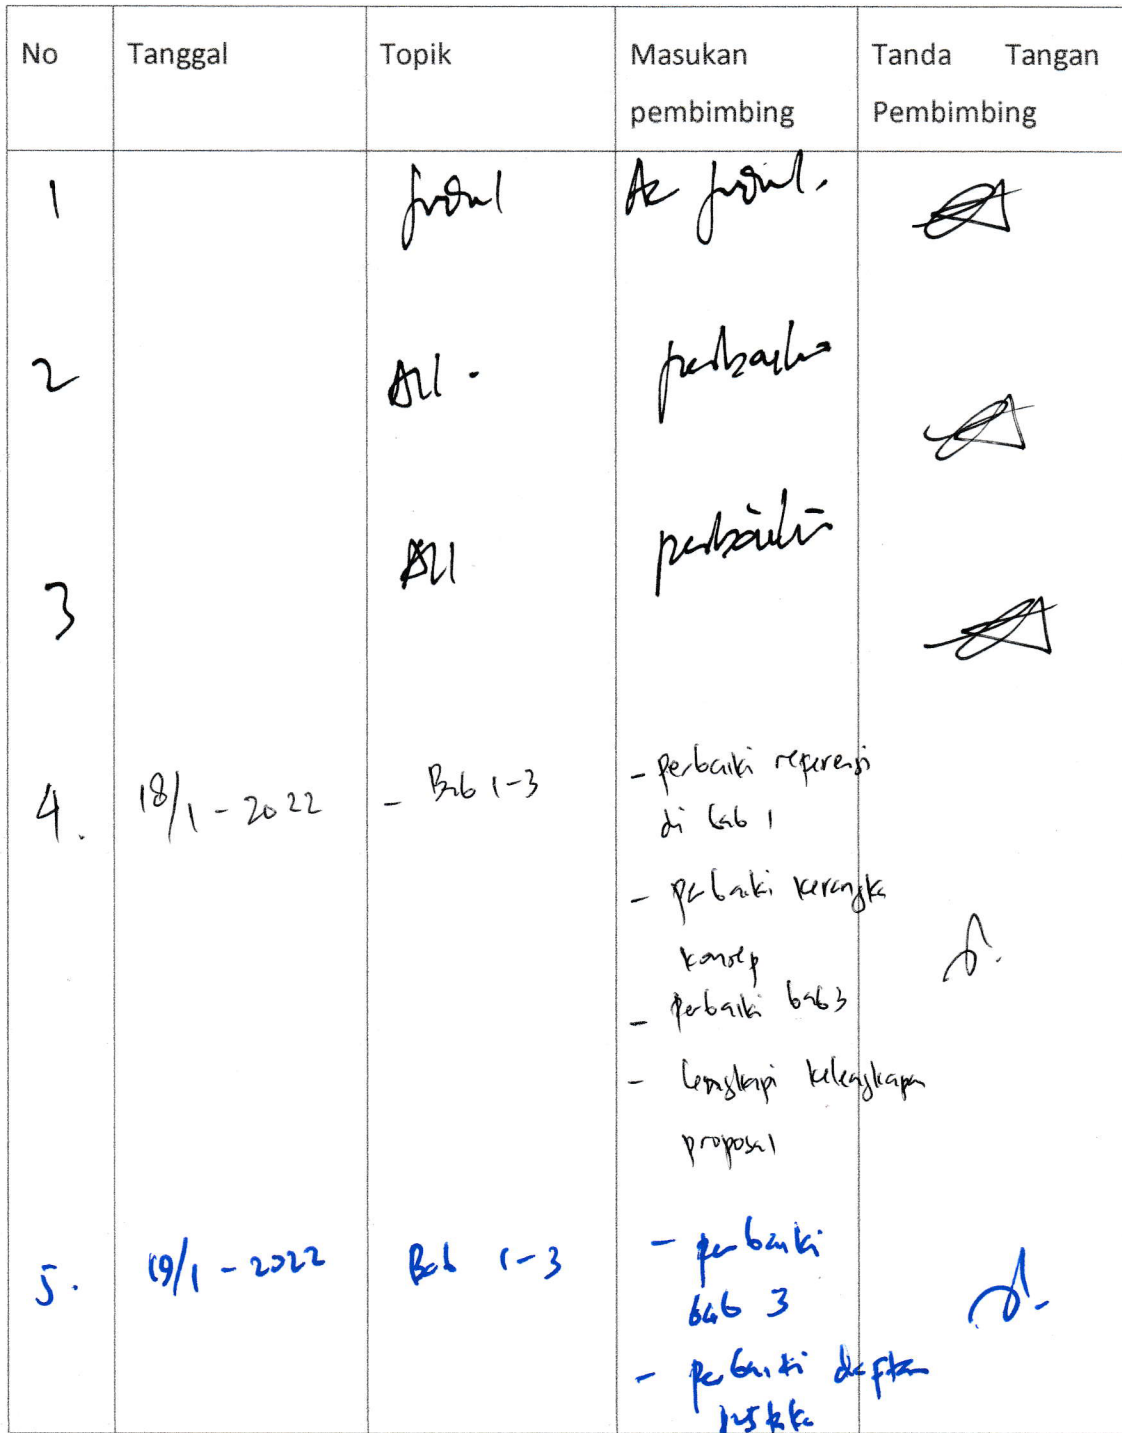 No Tanggal Topik Masukan Tanda Tangan
pembimbing Pembimbing
1 Judul Acc judul.
2 All . perbaiki
3 All perbaiki
4. 18/1 - 2022 - Bab 1-3 - perbaiki referensi
di bab 1
- perbaiki kerangka
konsep
- perbaiki bab 3
- lengkapi kelengkapan
proposal
5. 19/1 - 2022 Bab 1-3 - perbaiki
bab 3
- perbaiki daftar
pustaka